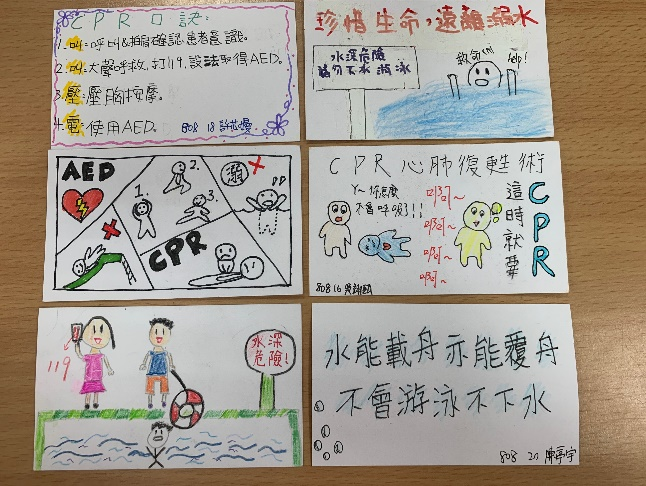 CPR口訣:
1.叫:呼叫&拍肩確認患者意識。
2.叫:大聲呼救,打119,設法取得AED。
3.壓:壓胸按摩。
4.電:使用AED。
808 18
珍惜生命,遠離溺水
水深危險
請勿下水游泳
救命
Help!
AED
1.
2.
3.
溺
CPR
CPR心肺復甦術
Y~你怎麼
不會呼吸了!!
啊~
啊~
啊~
啊~
這時就要
CPR
808 16
119
水深
危險!
水能載舟亦能覆舟
不會游泳不下水
808 20 陳亭宇